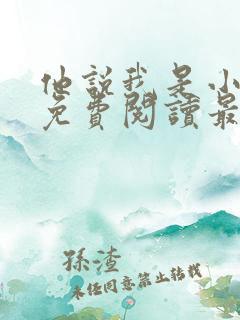 他說我是小
免費閱讀最
孫渣
未经同意禁止转载